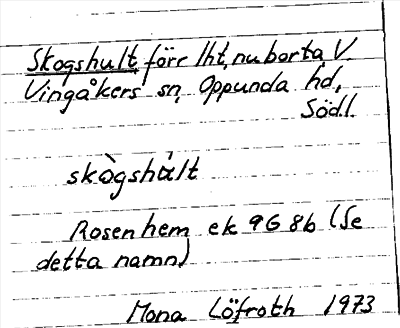 Skogshult, förr lht, nu borta V.
Vingåkers sn, Oppunda hd,
Södl.
skògshùlt
Rosenhem ek 9G 8b (Se
detta namn)
Mona Löfroth 1973